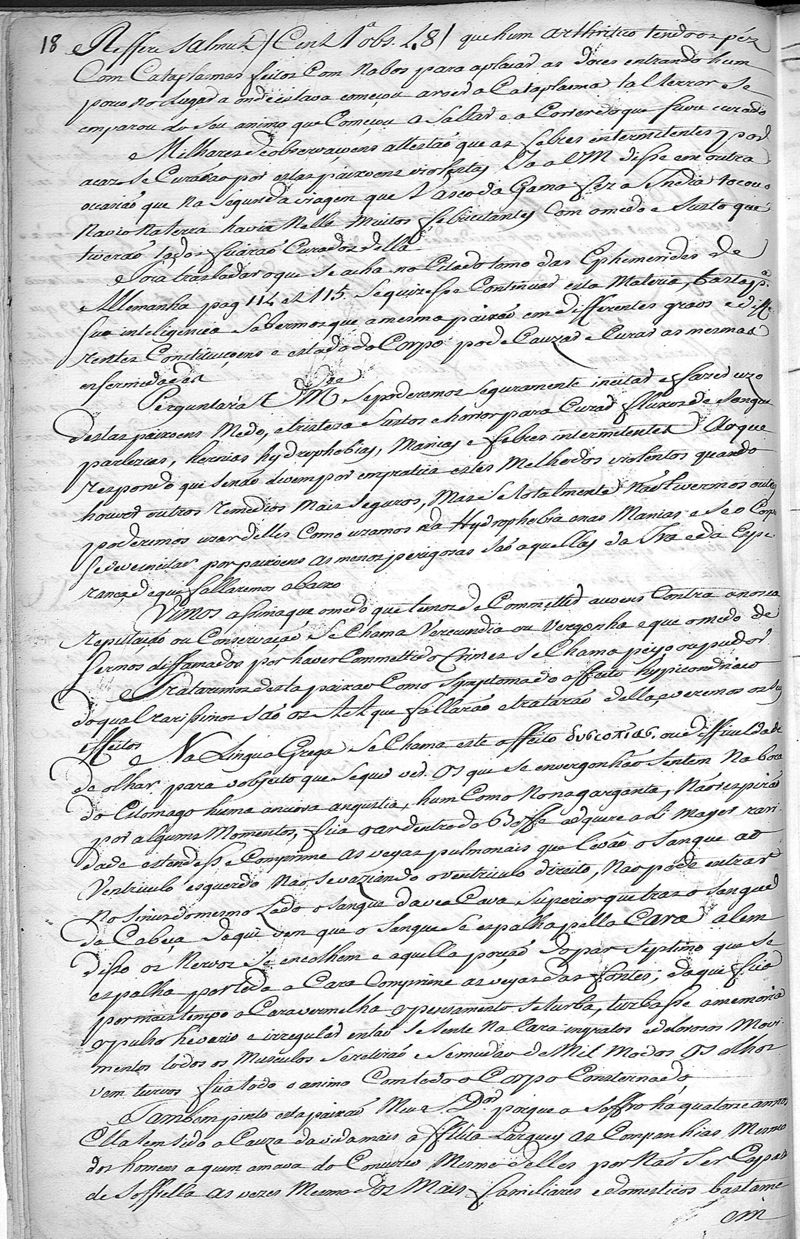 18 e Reffere Salmuth (Cent 1ª obs. 48) que hum arthritico tendo os péz
Com Cataplasmas feitos Com Nabos para aplacar as dores entrando hum
porco no lugar aonde estava começou a roer a Cataplasma tal terror se
emparou do Seu animo que Começou a Saltar e a Correr do que ficou curado
e Milhares de observaçoens attestão que as febres intermitentes por
acazo Se Curarão por estas paixoens violentas Ja a VM disse em outra
ocasião que na Segunda viagem que Vasco da Gama fez a India tocou o
Navio Na terra havia Nella Muitos febricitantes Com o medo e Susto que
tiverão todos ficarão Curados della
e Fora trasladar o que Se acha no Citado tomo das Ephemerides de
Allemanha pag 114 et 115. Se quizesse Continuar esta Materia, basta pª
Sua inteligencia Sabermos que a mesma paixão em differentes graos e diffe
rentes Constituiçoens e estado do Corpo pode Cauzar e Curar as mesmas
enfermidades
Perguntará VM Se poderemos Seguramente incitar e fazer uzo
destas paixoens Medo, e tristeza e Sustos e horror para Curar fluxos de Sangue
parlezias, hernias hydrophobias, Manias e febres intermitentes Ao que
respondo que Se não devem por em pratica estes Methodos violentos quando
houver outros remedios Mais Seguros, Mas Se totalmente Não tivermos outros
poderemos uzar delles Como uzamos na Hydrophobia e nas Manias e Se o Corpo
Se deve incitar por paixoens as menos perigosas São aquellas da Ira e da Espe
rança de que fallaremos abaixo
Vimos asima que o medo que temos de Commetter acoens Contra a nossa
reputação ou Conservação Se Chama Verecundia ou Vergonha e que o medo de
Sermos diffamados por haver Commettido Crimes Se Chama pejo ou pudor
e Trataremos desta paixão Como Symptoma do affeito hypicondriaco
do qual rarissimos São os AA que fallarão e tratarão della, e veremos os Seus
effeitos
e Na Lingua Grega Se Chama este affeito δυσωπίας, ou difficuldade
de olhar para o obfeito que Se quer ver. Os que Se envergonhão Sentem Na boca
do Estomago huma ancia e angustia, hum Como No na garganta, Não respirão
por alguns Momentos, fica o ar dentro do Boffe adquire ali Mayor rari
dade estendesse e Comprime as veyas pulmonais que levão o Sangue ao
Ventriculo esquerdo Não Se vaziando o ventriculo direito, Não pode entrar
No Sinus do mesmo Lado o Sangue da vea Cava Superior que traz o Sangue
da Cabeça daqui vem que o Sangue Se espalha pella Cara alem
disso os Nervos Se encolhem e aquella porção do par Septimo que Se
espalha por toda a Cara Comprime as veyas das fontes, daqui fica
por mais tempo a Cara vermelha o pensamento Se turba, turbasse a memoria
o pulso he vario e irregular então Se Sente Na Cara ingratos e dolorosos Movi
mentos todos os Musculos Se retirão e Se mudão de Mil Modos os olhos
vem turvos fica todo o animo Com todo o Corpo Consternado
Tambem pinto esta paixão Meu Dor porque a Soffro ha quatorze annos
Ella tem Sido a Cauza da vida mais afflita Larguey as Companhias Mesmo
dos homens a quem amava do Convivio Mesmo delles por Não Ser Capas
de Soffrella as vezes Mesmo dos Mais familiares e domesticos bastame
em